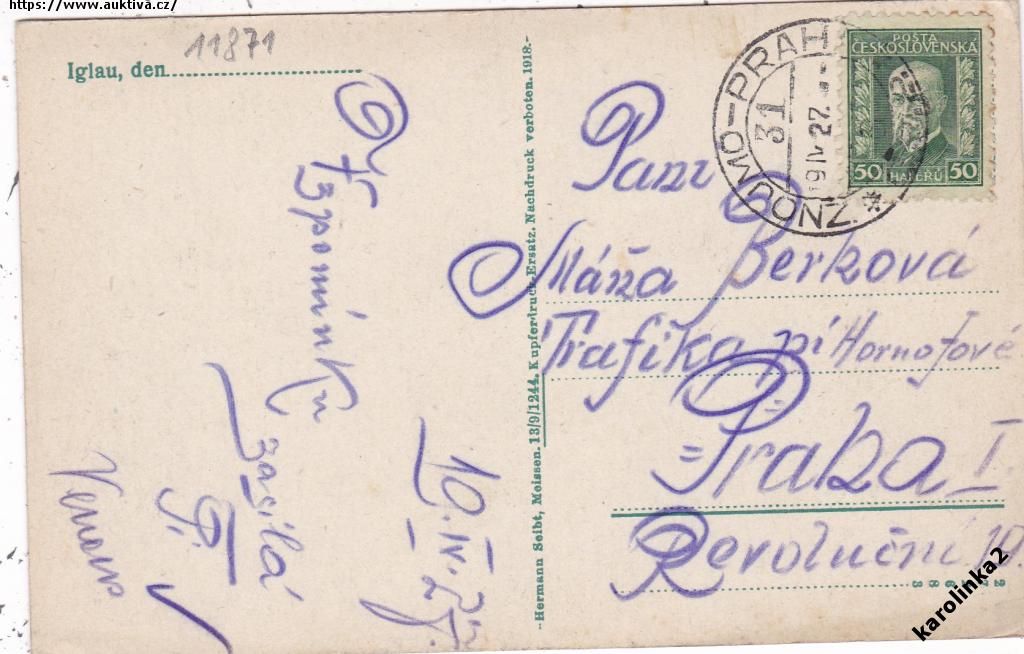 https://www.auktiva.cz/
11871
Iglau, den
Vzpomínku
zasílá
10.IV.27.
-Hermann Seibt, Meissen. 13/9/1244. Kupferdruck-Ersatz. Nachdruck verboten. 1918.-
ZNOJMO-PRAHA
31
9 IV 27
POŠTA
ČESKOSLOVENSKÁ
50 HALÉŘŮ 50
Paní
Máňa Berková
Trafika pí Hornofové
=Praha I.
Revoluční 19.
karolinka2